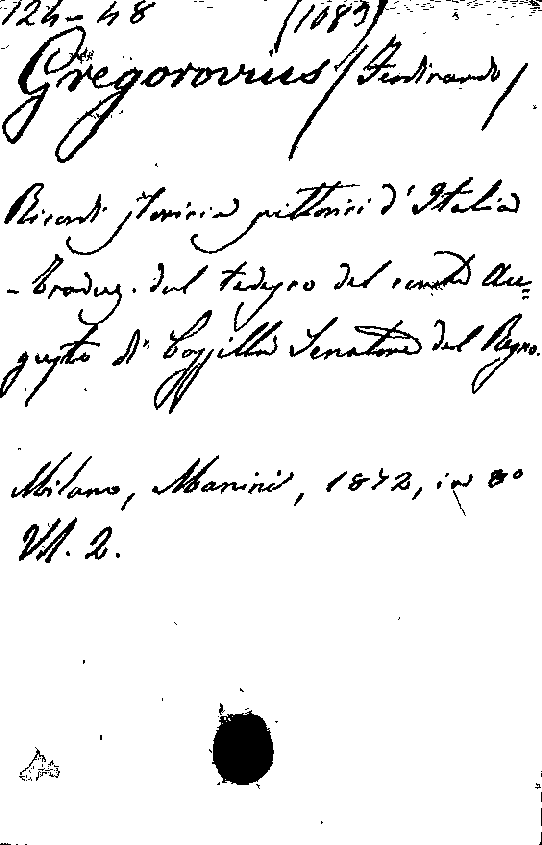 124-48 (1089)
Gregorovius (Ferdinando)
Ricordi storici e pittorici d'Italia
- Traduz. dal tedesco del conte Au=
gusto di Cossilla Senatore del Regno.
Milano, Manini, 1872, in 8º
Vol. 2.